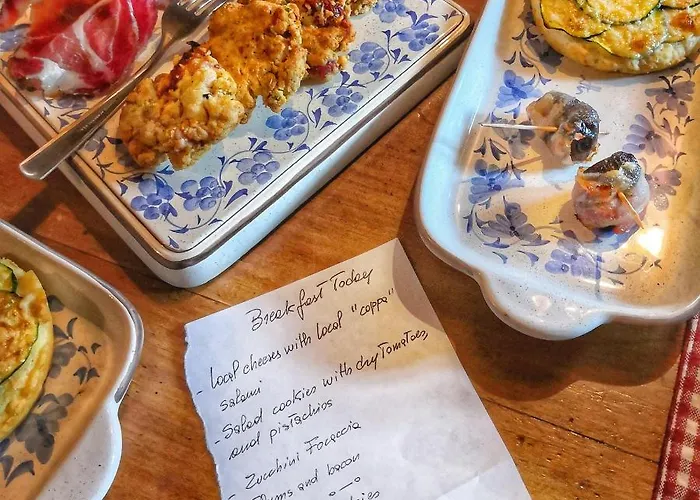 Breakfast Today
- Local cheeses with local "coppa"
salami
- Salad cookies with dry Tomatoes,
and pistachios
- Zucchini Focaccia
and bacon